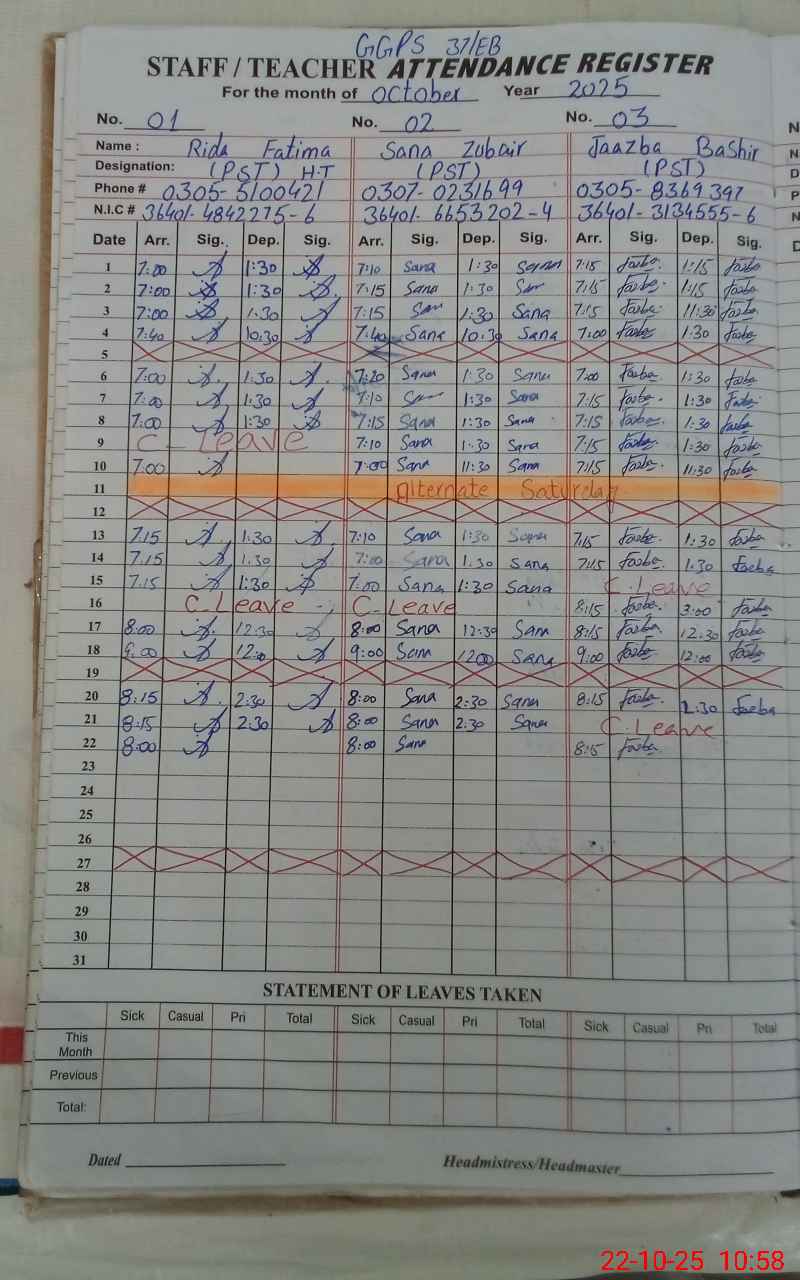 GGPS 37/EB
STAFF / TEACHER ATTENDANCE REGISTER
For the month of October Year 2025
No. 01 No. 02 No. 03
Name : Rida Fatima Sana Zubair Jaazba Bashir
Designation: (PST) H.T (PST) (PST)
Phone # 0305-5100421 0307-0231699 0305-8369397
N.I.C # 36401-4842275-6 36401-6653202-4 36401-3134555-6
Date Arr. Sig. Dep. Sig. Arr. Sig. Dep. Sig. Arr. Sig. Dep. Sig.
1 7:00 1:30 7:10 Sana 1:30 7:15 1:15
2 7:00 1:30 7:15 Sana 1:30 7:15 1:15
3 7:00 1:30 7:15 1:30 Sana 7:15 11:30
4 7:40 10:30 7:40 Sana 10:30 Sana 7:00 1:30
5
6 7:00 1:30 7:20 Sana 1:30 Sana 7:00 1:30
7 7:00 1:30 7:10 1:30 Sana 7:15 1:30
8 7:00 1:30 7:15 Sana 1:30 Sana 7:15 1:30
9 C-Leave 7:10 Sana 1:30 Sana 7:15 1:30
10 7:00 7:00 Sana 11:30 Sana 7:15 11:30
11 Alternate Saturday
12
13 7:15 1:30 7:10 Sana 1:30 Sana 7:15 1:30
14 7:15 1:30 7:00 Sana 1:30 Sana 7:15 1:30
15 7:15 1:30 7:00 Sana 1:30 Sana C.Leave
16 C-Leave C-Leave 8:15 3:00
17 8:00 12:30 8:00 Sana 12:30 Sana 8:15 12:30
18 9:00 12:00 9:00 Sana 12:00 Sana 9:00 12:00
19
20 8:15 2:30 8:00 Sana 2:30 Sana 8:15 2:30
21 8:15 2:30 8:00 Sana 2:30 Sana C.Leave
22 8:00 8:00 Sana 8:15
23
24
25
26
27
28
29
30
31
STATEMENT OF LEAVES TAKEN
Sick Casual Pri Total Sick Casual Pri Total Sick Casual Pri Total
This Month
Previous
Total:
Dated Headmistress/Headmaster
22-10-25 10:58